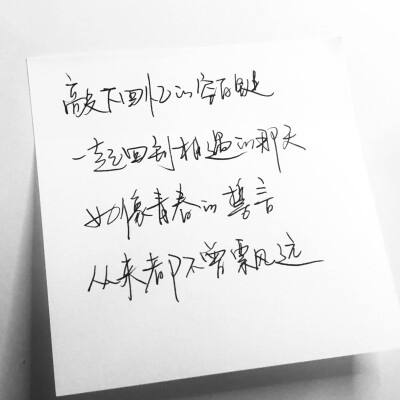 敲下回忆的空白键
一起回到相遇的那天
好像青春的誓言
从来都不曾飘远